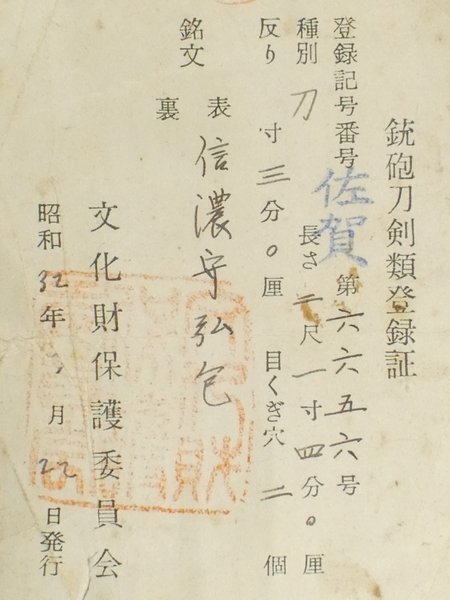 銃砲刀剣類登録証
登録記号番号 佐賀 第六六五六号
種別 刀 長さ 二尺一寸四分〇厘
反り 寸三分〇厘 目くぎ穴 二 個
銘文 表 信濃守弘包
裏
文化財保護委員会
昭和32年 月22日発行